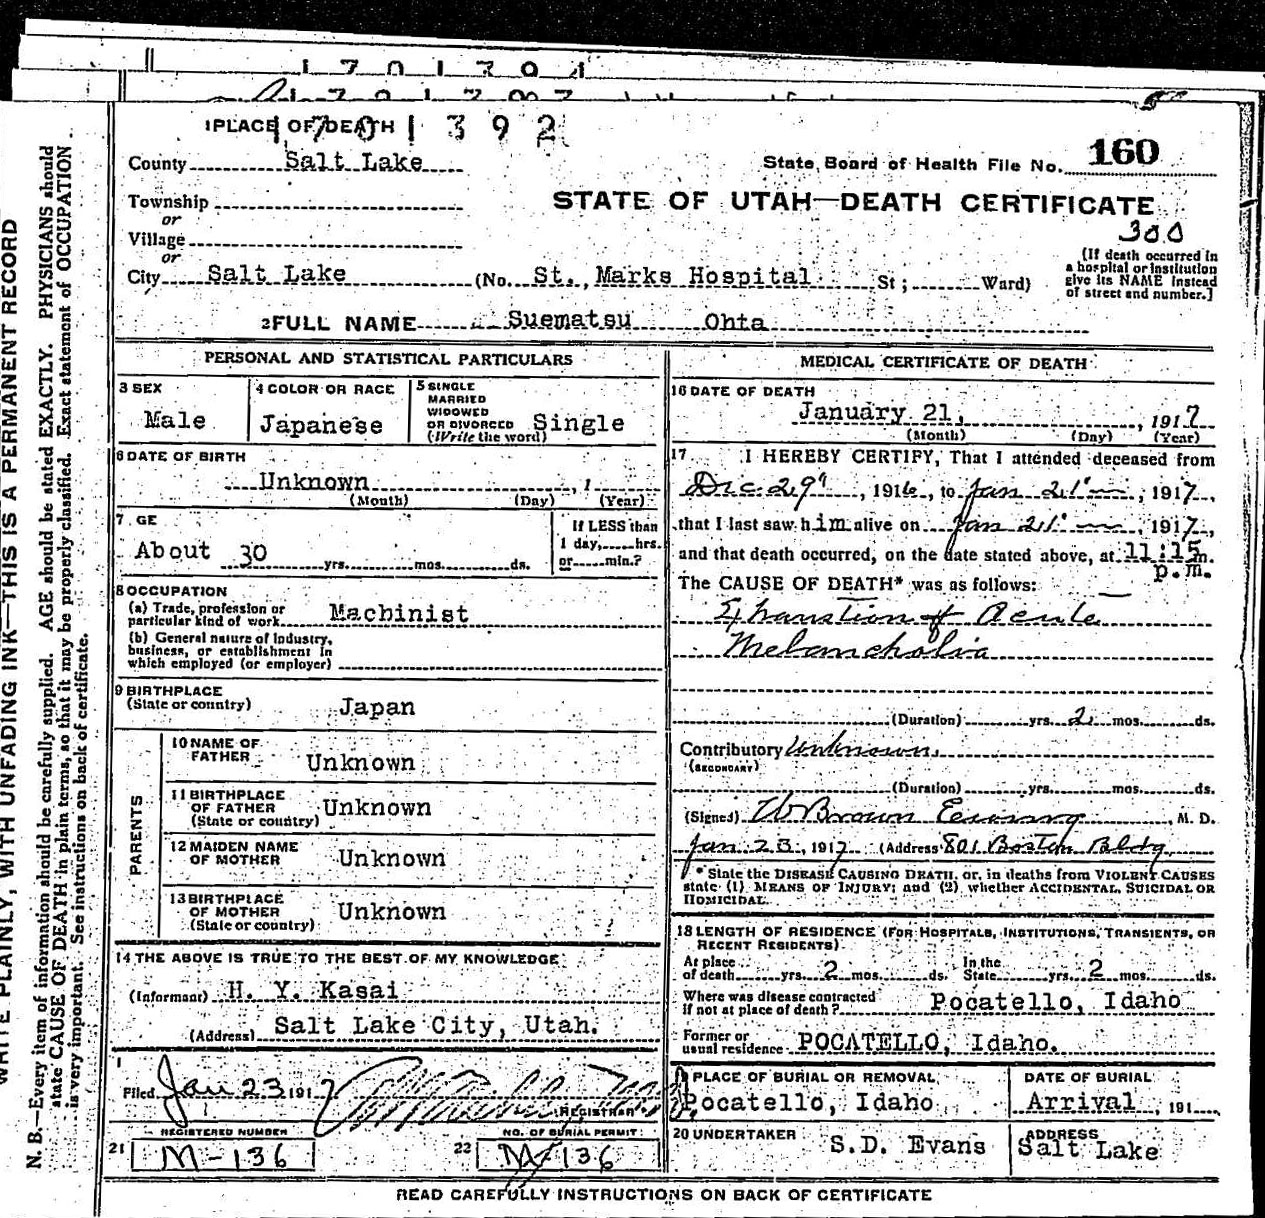 1 7 0 1 3 9 4
1PLACE OF DEATH
1 7 0 1 3 9 2
County Salt Lake
State Board of Health File No. 160
Township
or
Village
or
City Salt Lake (No. St., Marks Hospital St; Ward)
STATE OF UTAH—DEATH CERTIFICATE
300
(If death occurred in
a hospital or institution
give its NAME instead
of street and number.]
2FULL NAME Suematsu Ohta
PERSONAL AND STATISTICAL PARTICULARS
3 SEX
Male
4 COLOR OR RACE
Japanese
5 SINGLE
MARRIED
WIDOWED
OR DIVORCED
(Write the word)
Single
6 DATE OF BIRTH
Unknown , 1
(Month) (Day) (Year)
7 GE
About 30 yrs. mos. ds.
If LESS than
1 day, hrs.
or min.?
8 OCCUPATION
(a) Trade, profession or
particular kind of work Machinist
(b) General nature of Industry,
business, or establishment in
which employed (or employer)
9 BIRTHPLACE
(State or country) Japan
PARENTS
10 NAME OF
FATHER Unknown
11 BIRTHPLACE
OF FATHER
(State or country) Unknown
12 MAIDEN NAME
OF MOTHER Unknown
13 BIRTHPLACE
OF MOTHER
(State or country) Unknown
14 THE ABOVE IS TRUE TO THE BEST OF MY KNOWLEDGE
(Informant) H. Y. Kasai
(Address) Salt Lake City, Utah.
1
Filed Jan 23 1917
REGISTRAR
REGISTERED NUMBER
21 M-136
NO. OF BURIAL PERMIT
22 M-136
MEDICAL CERTIFICATE OF DEATH
16 DATE OF DEATH
January 21, , 1917
(Month) (Day) (Year)
17 I HEREBY CERTIFY, That I attended deceased from
Dec. 29", 1916, to Jan 21", 1917,
that I last saw him alive on Jan 21", 1917,
and that death occurred, on the date stated above, at 11:15 m.
p.m.
The CAUSE OF DEATH* was as follows:
Exhaustion of Acute
Melancholia
(Duration) yrs. 2 mos. ds.
Contributory Unknown.
(SECONDARY)
(Duration) yrs. mos. ds.
(Signed) W Brown Ewing, M. D.
Jan 23, 1917 (Address 801 Boston Bldg.
* State the DISEASE CAUSING DEATH, or, in deaths from VIOLENT CAUSES
state (1) MEANS OF INJURY; and (2) whether ACCIDENTAL, SUICIDAL OR
HOMICIDAL.
18 LENGTH OF RESIDENCE (FOR HOSPITALS, INSTITUTIONS, TRANSIENTS, OR
RECENT RESIDENTS)
At place
of death yrs. 2 mos. ds. In the
State yrs. 2 mos. ds.
Where was disease contracted
if not at place of death? Pocatello, Idaho
Former or
usual residence POCATELLO, Idaho.
PLACE OF BURIAL OR REMOVAL
Pocatello, Idaho
DATE OF BURIAL
Arrival , 191
20 UNDERTAKER S.D. Evans
ADDRESS
Salt Lake
READ CAREFULLY INSTRUCTIONS ON BACK OF CERTIFICATE
WRITE PLAINLY, WITH UNFADING INK—THIS IS A PERMANENT RECORD
N. B.—Every item of information should be carefully supplied. AGE should be stated EXACTLY. PHYSICIANS should
state CAUSE OF DEATH in plain terms, so that it may be properly classified. Exact statement of OCCUPATION
is very important. See instructions on back of certificate.